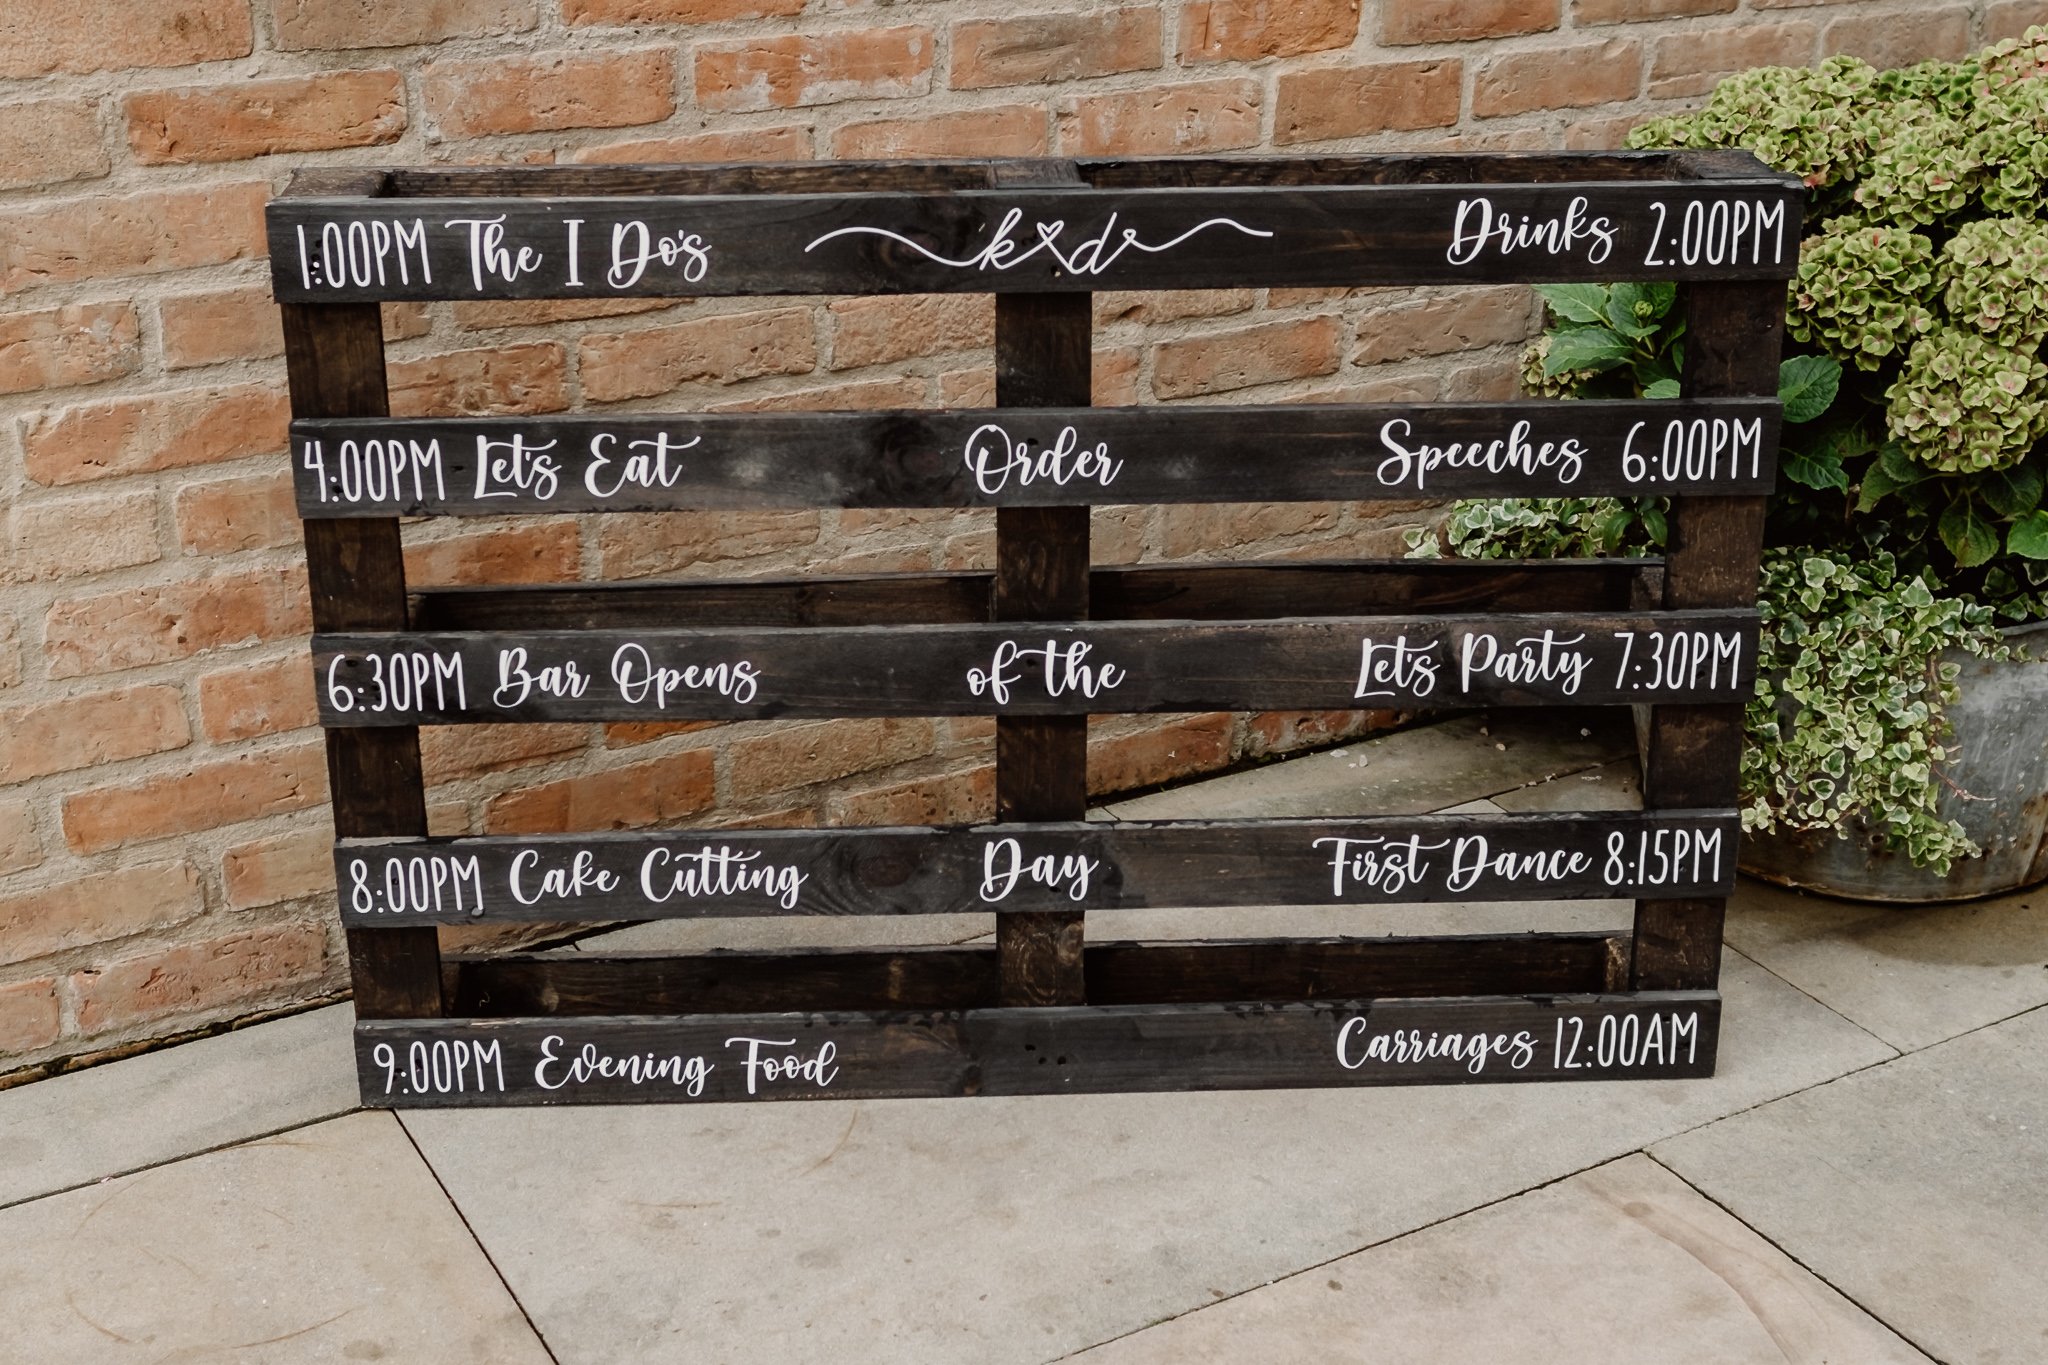 1:00PM The I Do's k d Drinks 2:00PM
4:00PM Let's Eat Order Speeches 6:00PM
6:30PM Bar Opens of the Let's Party 7:30PM
8:00PM Cake Cutting Day First Dance 8:15PM
9:00PM Evening Food Carriages 12:00AM